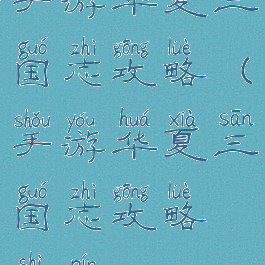 手游华夏三
guó zhì gōng lüè
国志攻略（
shǒu yóu huá xià sān
手游华夏三
guó zhì gōng lüè
国志攻略